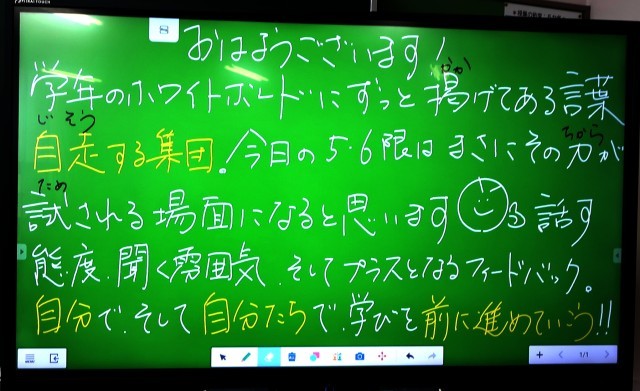 おはようございます！
学年のホワイトボードにずっと掲げてある言葉
自走する集団。今日の5・6限はまさにその力が
試される場面になると思います る 話す
態度、聞く雰囲気、そしてプラスとなるフィードバック。
自分で、そして自分たちで、学びを前に進めていこう!!
かか
じそう
ちから
ため
1/1